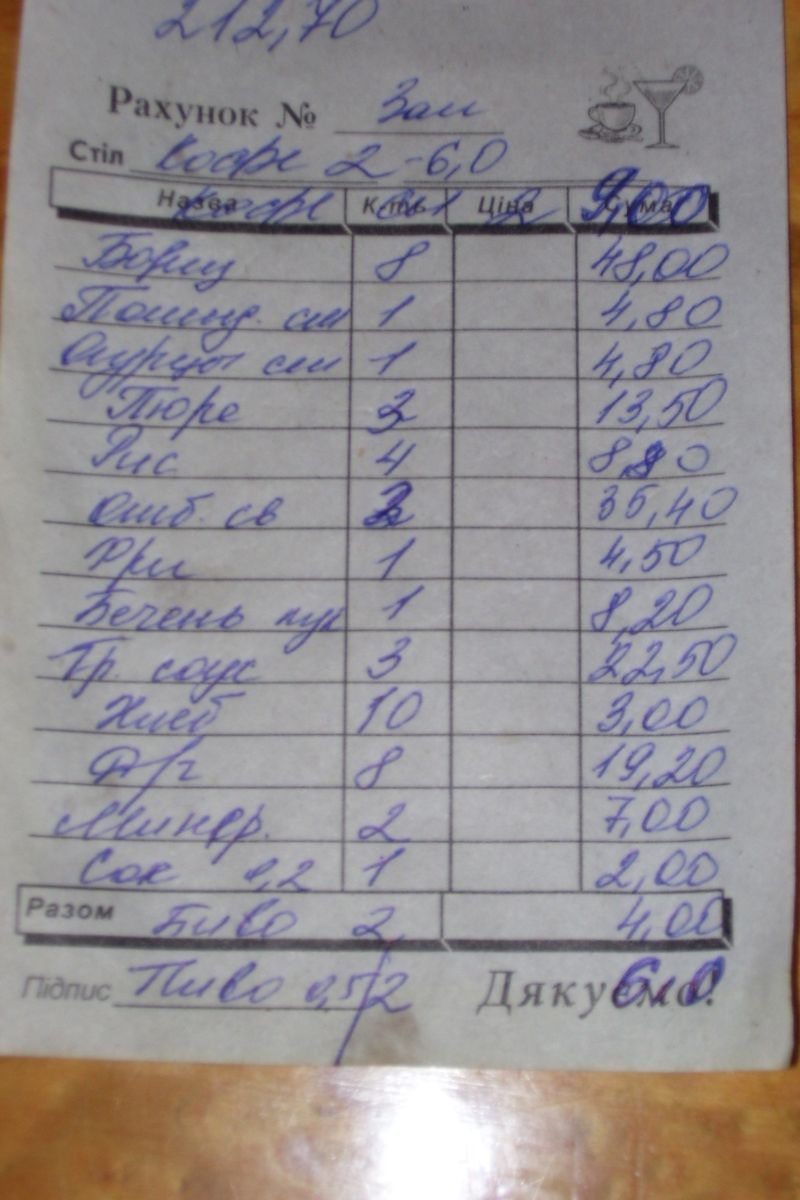 212,70
Рахунок № Зал
Стіл Кофе 2 - 6,0
Назва К-ть Ціна Сума
Кофе 9,00
Борщ 8 48,00
Помид. см 1 4,80
Огурцы см 1 4,80
Пюре 3 13,50
Рис 4 8,80
отб. св 3 35,40
Фри 1 4,50
Печень кур 1 8,20
Гр. соус 3 22,50
Хлеб 10 3,00
8 19,20
Минер. 2 7,00
Сок 0,2 1 2,00
Разом Пиво 2 4,00
Підпис Пиво 0,5 2 6,0
Дякуємо!